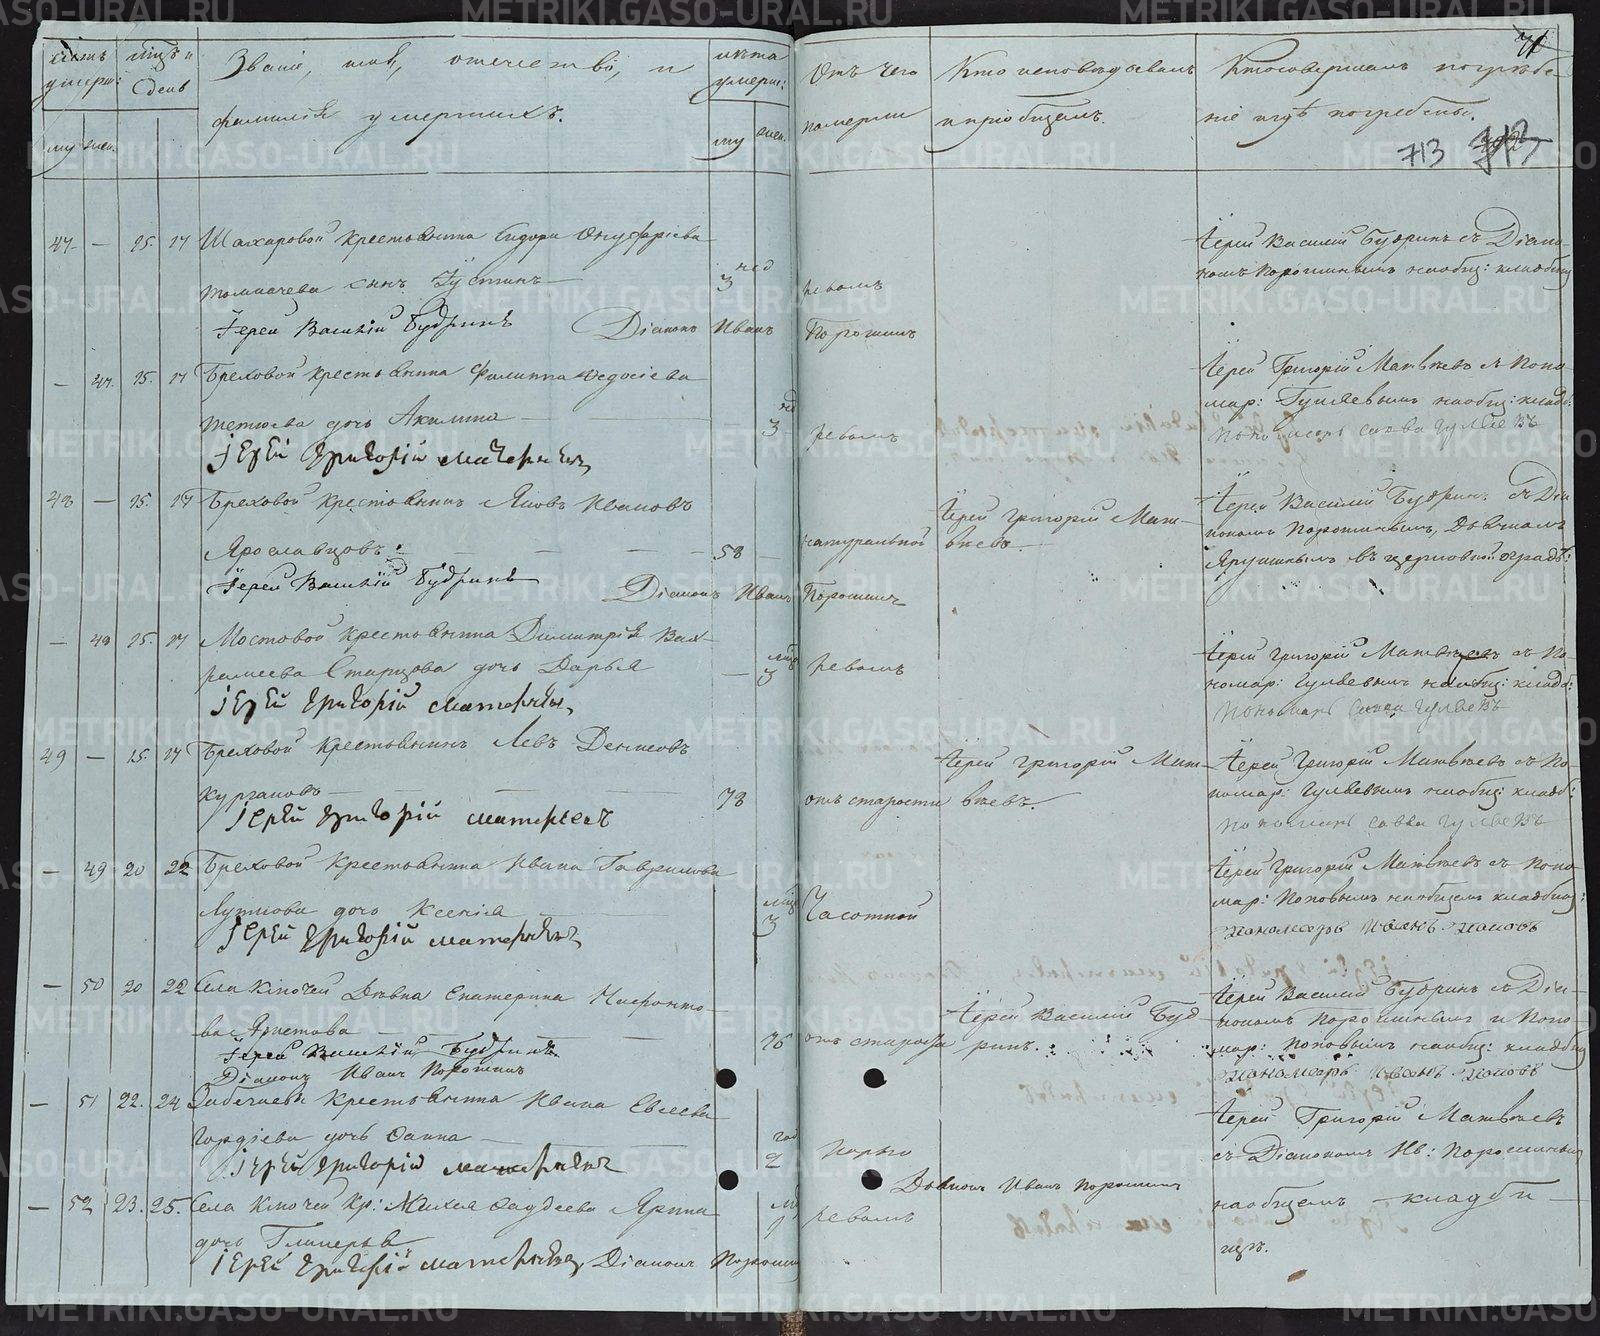 METRIKI.GASO-URAL.RU
Счетъ умерш:
Мцъ и день
Званіе, имя, отчество, и
фамилія умершихъ.
лѣта умерш:
Отъ чего померли
Кто исповѣдывалъ и пріобщалъ.
Кто совершалъ погребе-
ніе и гдѣ погребены.
му жен.
му жен.
713
47 — 15. 17 Шахаровой крестьянина Сидора Онуфріева
Толмачева сынъ Іустинъ — 3 нед
ревомъ
Іерей Василій Будринъ съ Діако-
номъ Порошинымъ на общ: кладбищ
Іерей Василій Будринъ Діаконъ Иванъ Порошинъ
— 47. 15. 17 Бреховой крестьянина Филиппа Федосіева
дочь Акилина — 3 нд
ревомъ
Іерей Григорій Матвѣевъ съ Поно-
мар: Гуляевымъ на общ: кладб:
Пономарь Савва Гуляевъ
Іерей Григорій Матвѣевъ
48 — 15. 17 Бреховой крестьянинъ Яковъ Ивановъ
Ярославцовъ — 58 —
натуральной
Іерей Григорій Мат-
вѣевъ
Іерей Василій Будринъ съ Діа
кономъ Порошинымъ, Дьячкомъ
въ церковной оградѣ:
Іерей Василій Будринъ Діаконъ Иванъ Порошинъ
— 48 15. 17 Мостовой крестьянина Димитрія Вах-
рамеева Старцова дочь Дарья — 3 мцъ
ревомъ
Іерей Григорій Матвѣевъ съ По-
номар: Гуляевымъ на общ: кладб:
Пономарь Савва Гуляевъ
Іерей Григорій Матвѣевъ
49 — 15. 17 Бреховой крестьянинъ Левъ Денисовъ
Кургановъ — 78
отъ старости
Іерей Григорій Мат-
вѣевъ.
Іерей Григорій Матвѣевъ съ По-
номар: Гуляевымъ на общ: кладб:
Пономарь Савва Гуляевъ
Іерей Григорій Матвѣевъ
— 49 20 22 Бреховой крестьянина Ивана Гаврилова
дочь Ксенія — 3 мцъ
Чахоткой
Іерей Григорій Матвѣевъ съ Поно
мар: Поповымъ на общемъ кладбищ:
Пономарь Иванъ Поповъ
Іерей Григорій Матвѣевъ
— 50 20 22 Села Ключей Дѣвка Екатерина
76
отъ старости
Іерей Василій Буд
ринъ.
Іерей Василій Будринъ съ Діа-
кономъ Порошинымъ и Поно
мар: Поповымъ на общ: кладбищ
Пономарь Иванъ Поповъ
Іерей Василій Будринъ
Діаконъ Иванъ Порошинъ
— 51 22. 24 крестьянина Ивана Евсеева
Гордіева дочь Фаина — 2 год
Іерей Григорій Матвѣевъ
съ Діакономъ Ив: Порошинымъ
на общемъ кладби-
щѣ.
Іерей Григорій Матвѣевъ
Діаконъ Иванъ Порошинъ
— 52 23. 25. Села Ключей кр:
дочь Гликерья
ревомъ
Іерей Григорій Матвѣевъ, Діаконъ Порошинъ